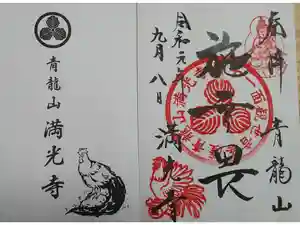 青龍山
満光寺
奉拝
青龍山
施無畏
満光寺
令和元年
九月八日